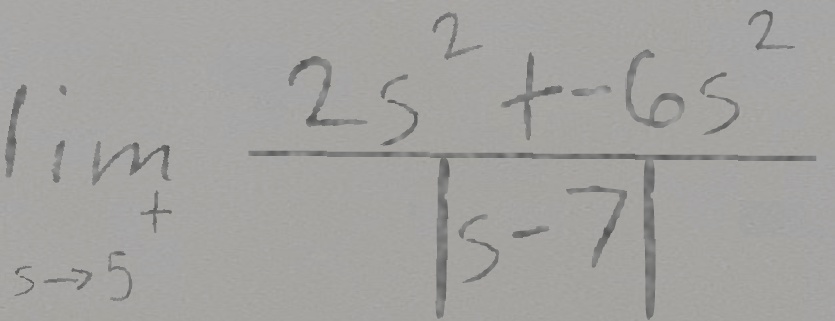 \lim_{s \to 5^+} \frac{2s^2 + -6s^2}{|s-7|}